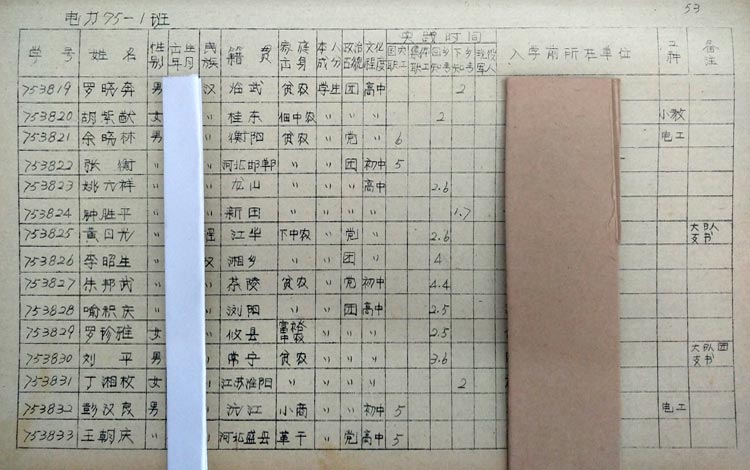 53
电力75-1班
学号 姓名 性别 出生年月 民族 籍贯 家庭出身 本人成分 政治面貌 文化程度 实践时间 入学前所在单位 工种 备注
回乡知青 下乡知青
753819 罗晓奔 男 汉 临武 贫农 学生 团 高中 2
753820 胡紫猷 女 〃 桂东 佃中农 〃 〃 〃 2 小教
753821 余晓林 男 〃 衡阳 贫农 〃 党 〃 6 电工
753822 张衡 〃 〃 河北邯郸 〃 〃 团 初中 5
753823 姚六祥 〃 〃 龙山 〃 〃 〃 高中 2.6
753824 钟胜平 〃 〃 新田 〃 〃 〃 〃 1.7
753825 黄日光 〃 瑶 江华 下中农 〃 党 〃 2.6 大队支书
753826 李昭生 〃 汉 湘乡 〃 〃 团 〃 4
753827 朱邦武 〃 〃 茶陵 贫农 〃 党 初中 4.4
753828 喻积庆 〃 〃 浏阳 〃 〃 团 高中 2.5
753829 罗珍雅 女 〃 攸县 富裕中农 〃 〃 〃 2.5
753830 刘平 男 〃 常宁 贫农 〃 〃 〃 3.6 大队团支书
753831 丁湘枚 女 〃 江苏淮阳 〃 〃 〃 〃 2
753832 彭汉成 男 〃 沅江 小商 〃 〃 初中 5 电工
753833 王朝庆 〃 〃 河北盛县 革干 〃 党 高中 5